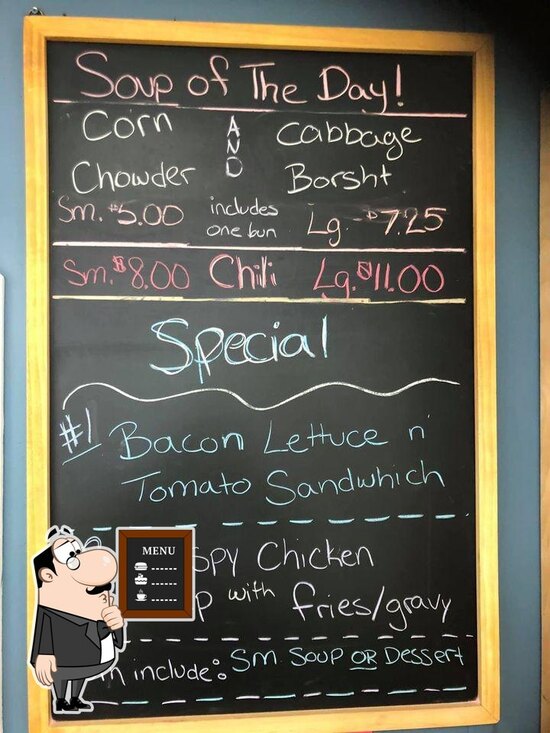 Soup of The Day!
Corn AND Cabbage
Chowder Borsht
Sm. $5.00 includes one bun Lg. $7.25
Sm. $8.00 Chili Lg. $11.00
Special
#1 Bacon Lettuce n'
Tomato Sandwhich
MENU
Chicken
with fries/gravy
include: Sm Soup OR Dessert